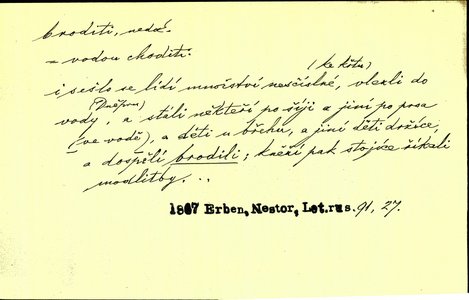 broditi, nedok.
= vodou choditi.
(ke křtu)
i sešlo se lidí množství nesčíslné, vlezli do
(Dněpru)
vody, a stáli někteří po šíji a jiní po prsa
(ve vodě), a děti u břehu, a jiní děti držíce,
a dospělí brodili; kněží pak stojíce říkali
modlitby...
1867 Erben, Nestor, Let.rus. 91, 27.